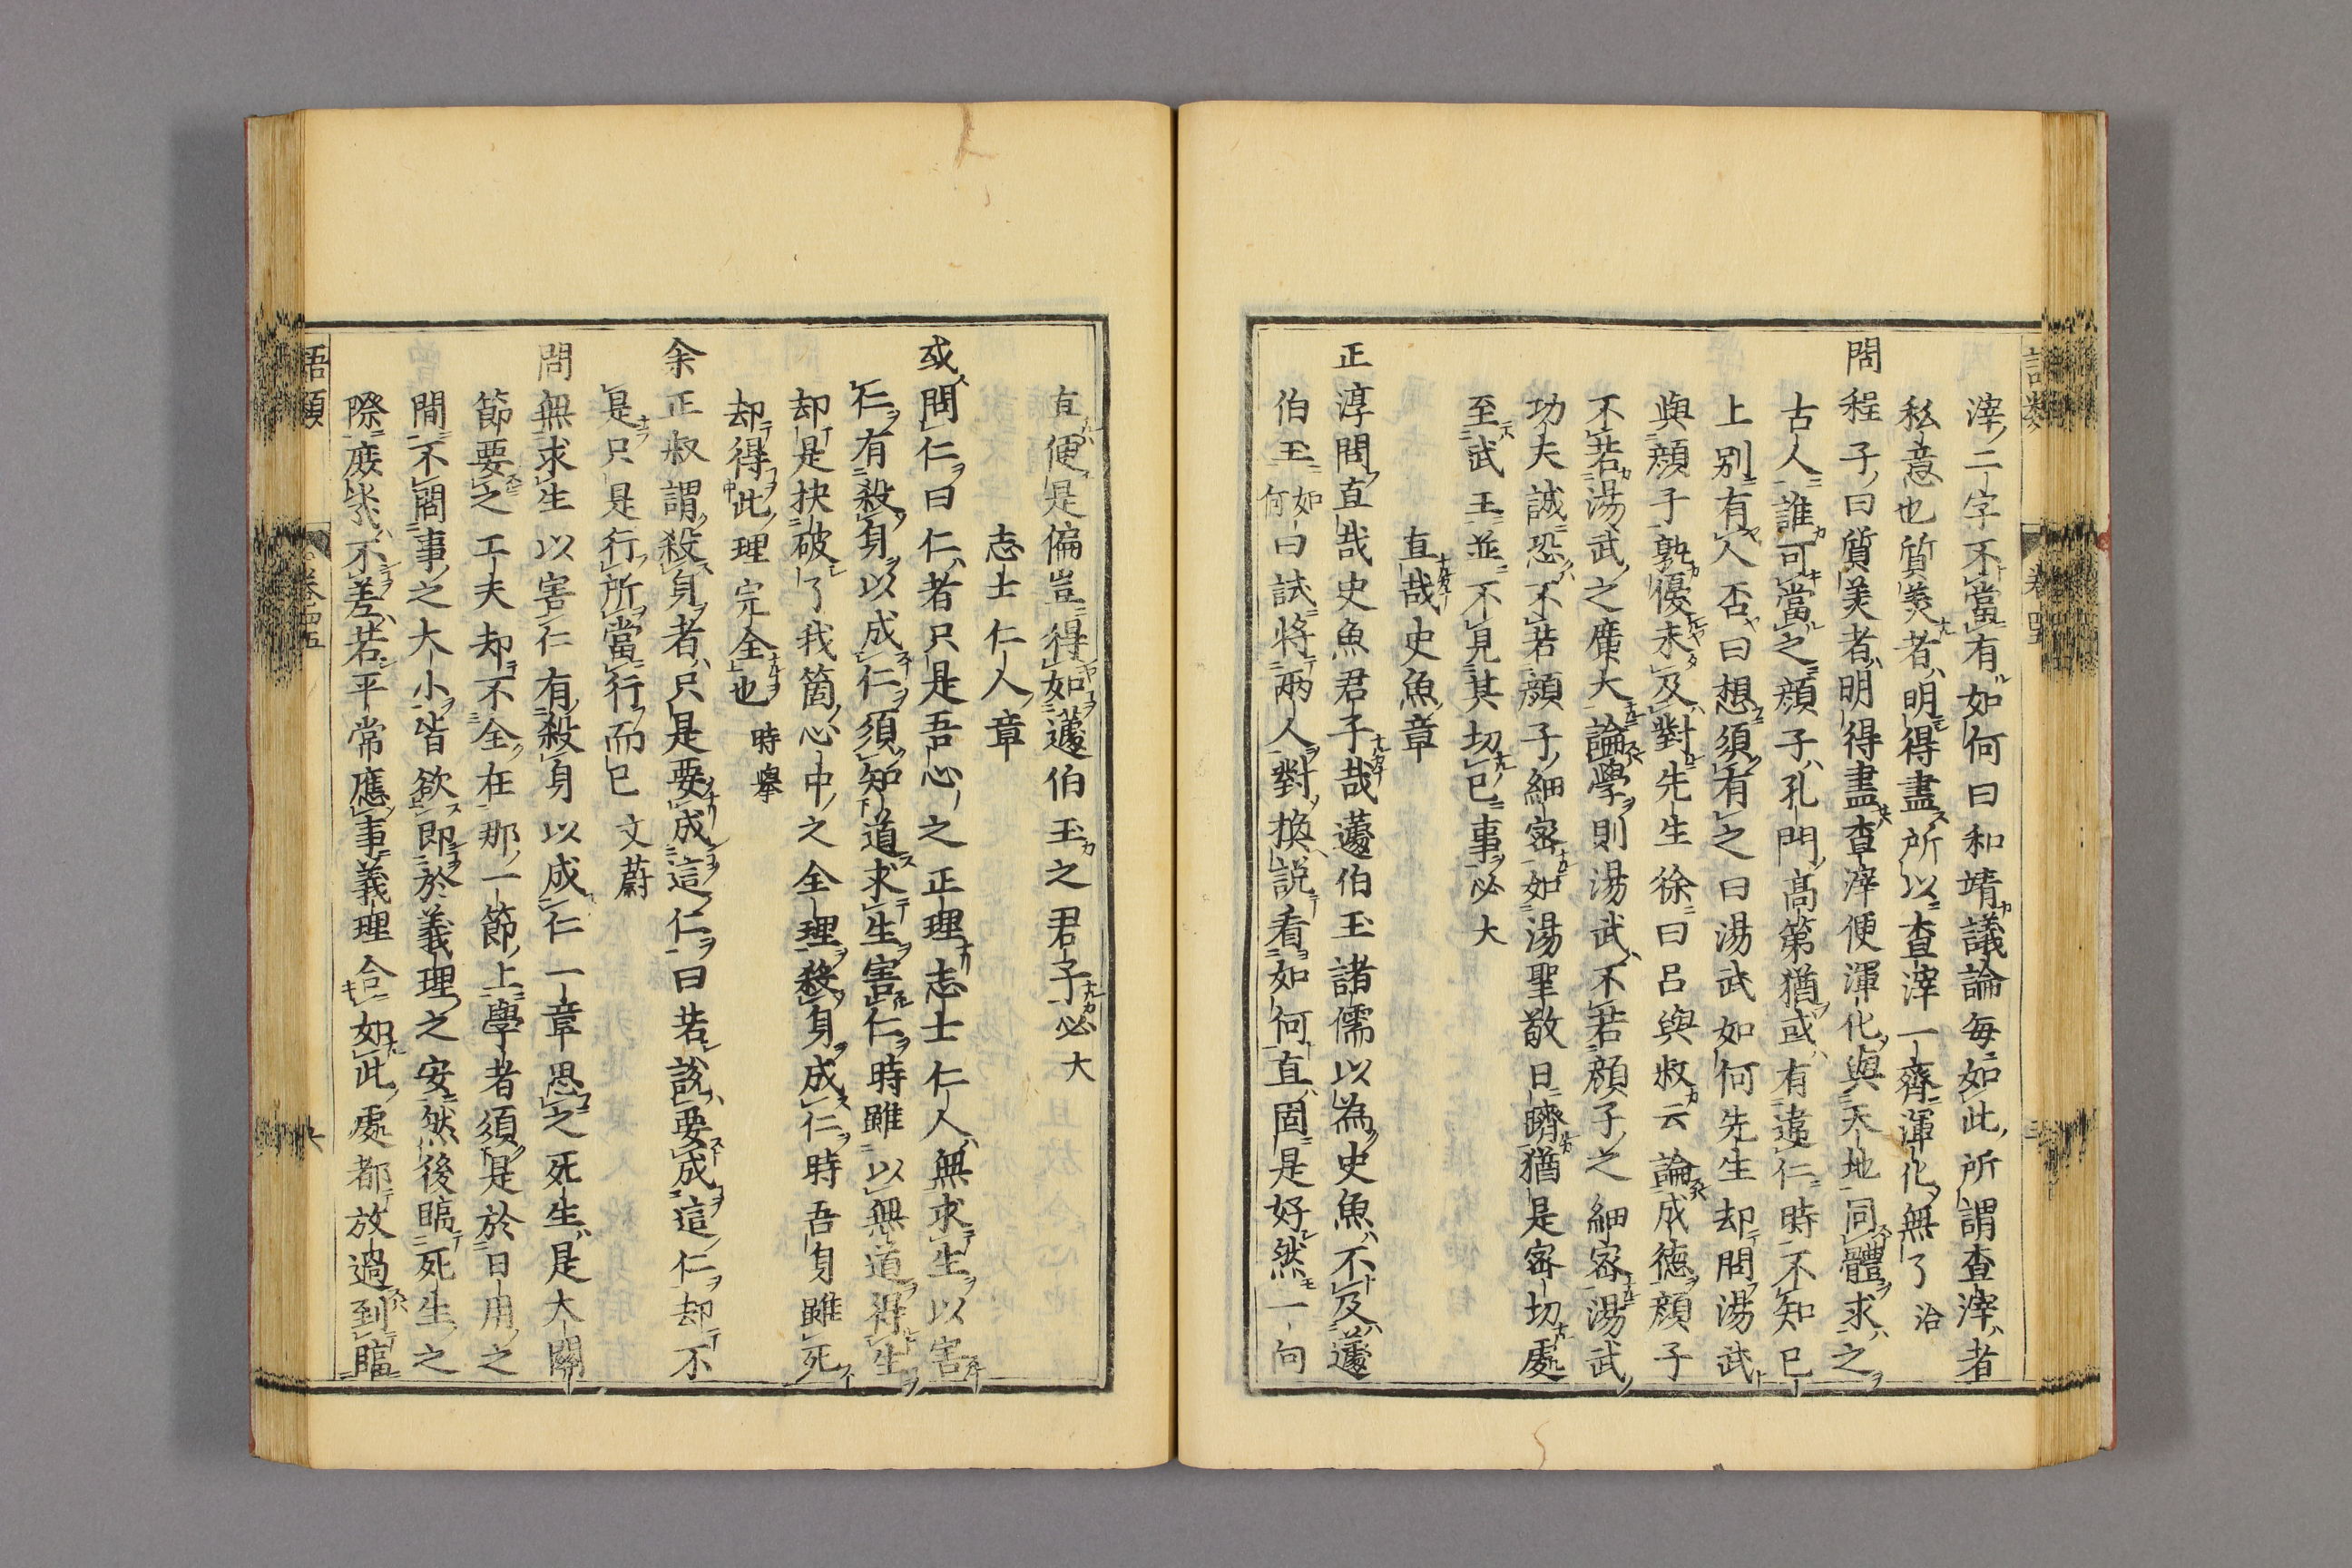 滓二字不當有如何曰和靖議論每如此所謂査滓者
私意也質美者明得盡所以査滓一齊渾化無了 洽
問程子曰質美者明得盡査滓便渾化與天地同體求之
古人誰可當之顔子孔門高第猶或有違仁時不知已
上别有人否曰想須有之曰湯武如何先生却問湯武
與顔子孰優未及對先生徐曰呂與叔云論成徳顔子
不若湯武之廣大論學則湯武不若顔子之細密湯武
功夫誠恐不若顔子細密如湯聖敬日躋猶是密切處
至武王並不見其切已事 必大
直哉史魚章
正淳問直哉史魚君子哉蘧伯玉諸儒以為史魚不及蘧
伯玉如何曰試將兩人對換説看如何直固是好然一向
直便是偏豈得如蘧伯玉之君子 必大
志士仁人章
或問仁曰仁者只是吾心之正理志士仁人無求生以害
仁有殺身以成仁須知道求生害仁時雖以無道得生
却是抉破了我箇心中之全理殺身成仁時吾身雖死
却得此理完全也 時擧
余正叔謂殺身者只是要成這仁曰若說要成這仁却不
是只是行所當行而已 文蔚
問無求生以害仁有殺身以成仁一章思之死生是大關
節要之工夫却不全在那一節上學者須是於日用之
間不問事之大小皆欲即於義理之安然後臨死生之
際庶幾不差若平常應事義理合如此處都放過到臨
語類